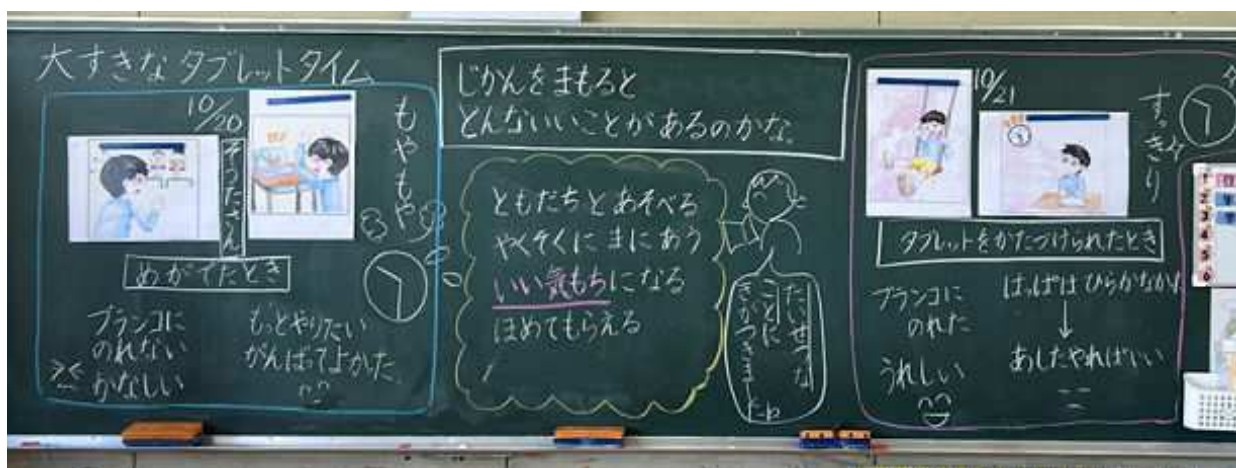 大すきなタブレットタイム
10/20
そうたさん
もやもや
めがでたとき
ブランコに
のれない
かなしい
もっとやりたい
がんばてよかた
じかんをまもると
どんないいことがあるのかな。
ともだちとあそべる
やくそくにまにあう
いい気もちになる
ほめてもらえる
たいせつな
ことに
きがつきま
したね
10/21
すっきり
タブレットをかたづけられたとき
ブランコに
のれた
うれしい
はっぱはひらかなかた
↓
あしたやればいい
1
2
3
4
5
6